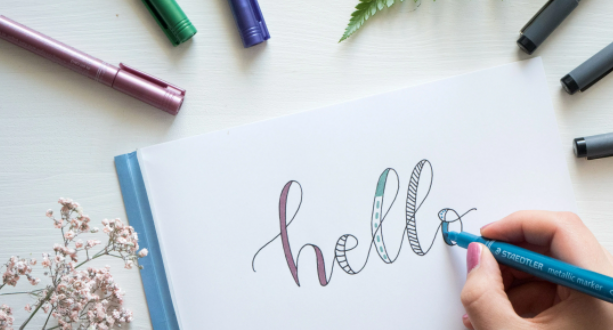 hello
STAEDTLER metallic marker